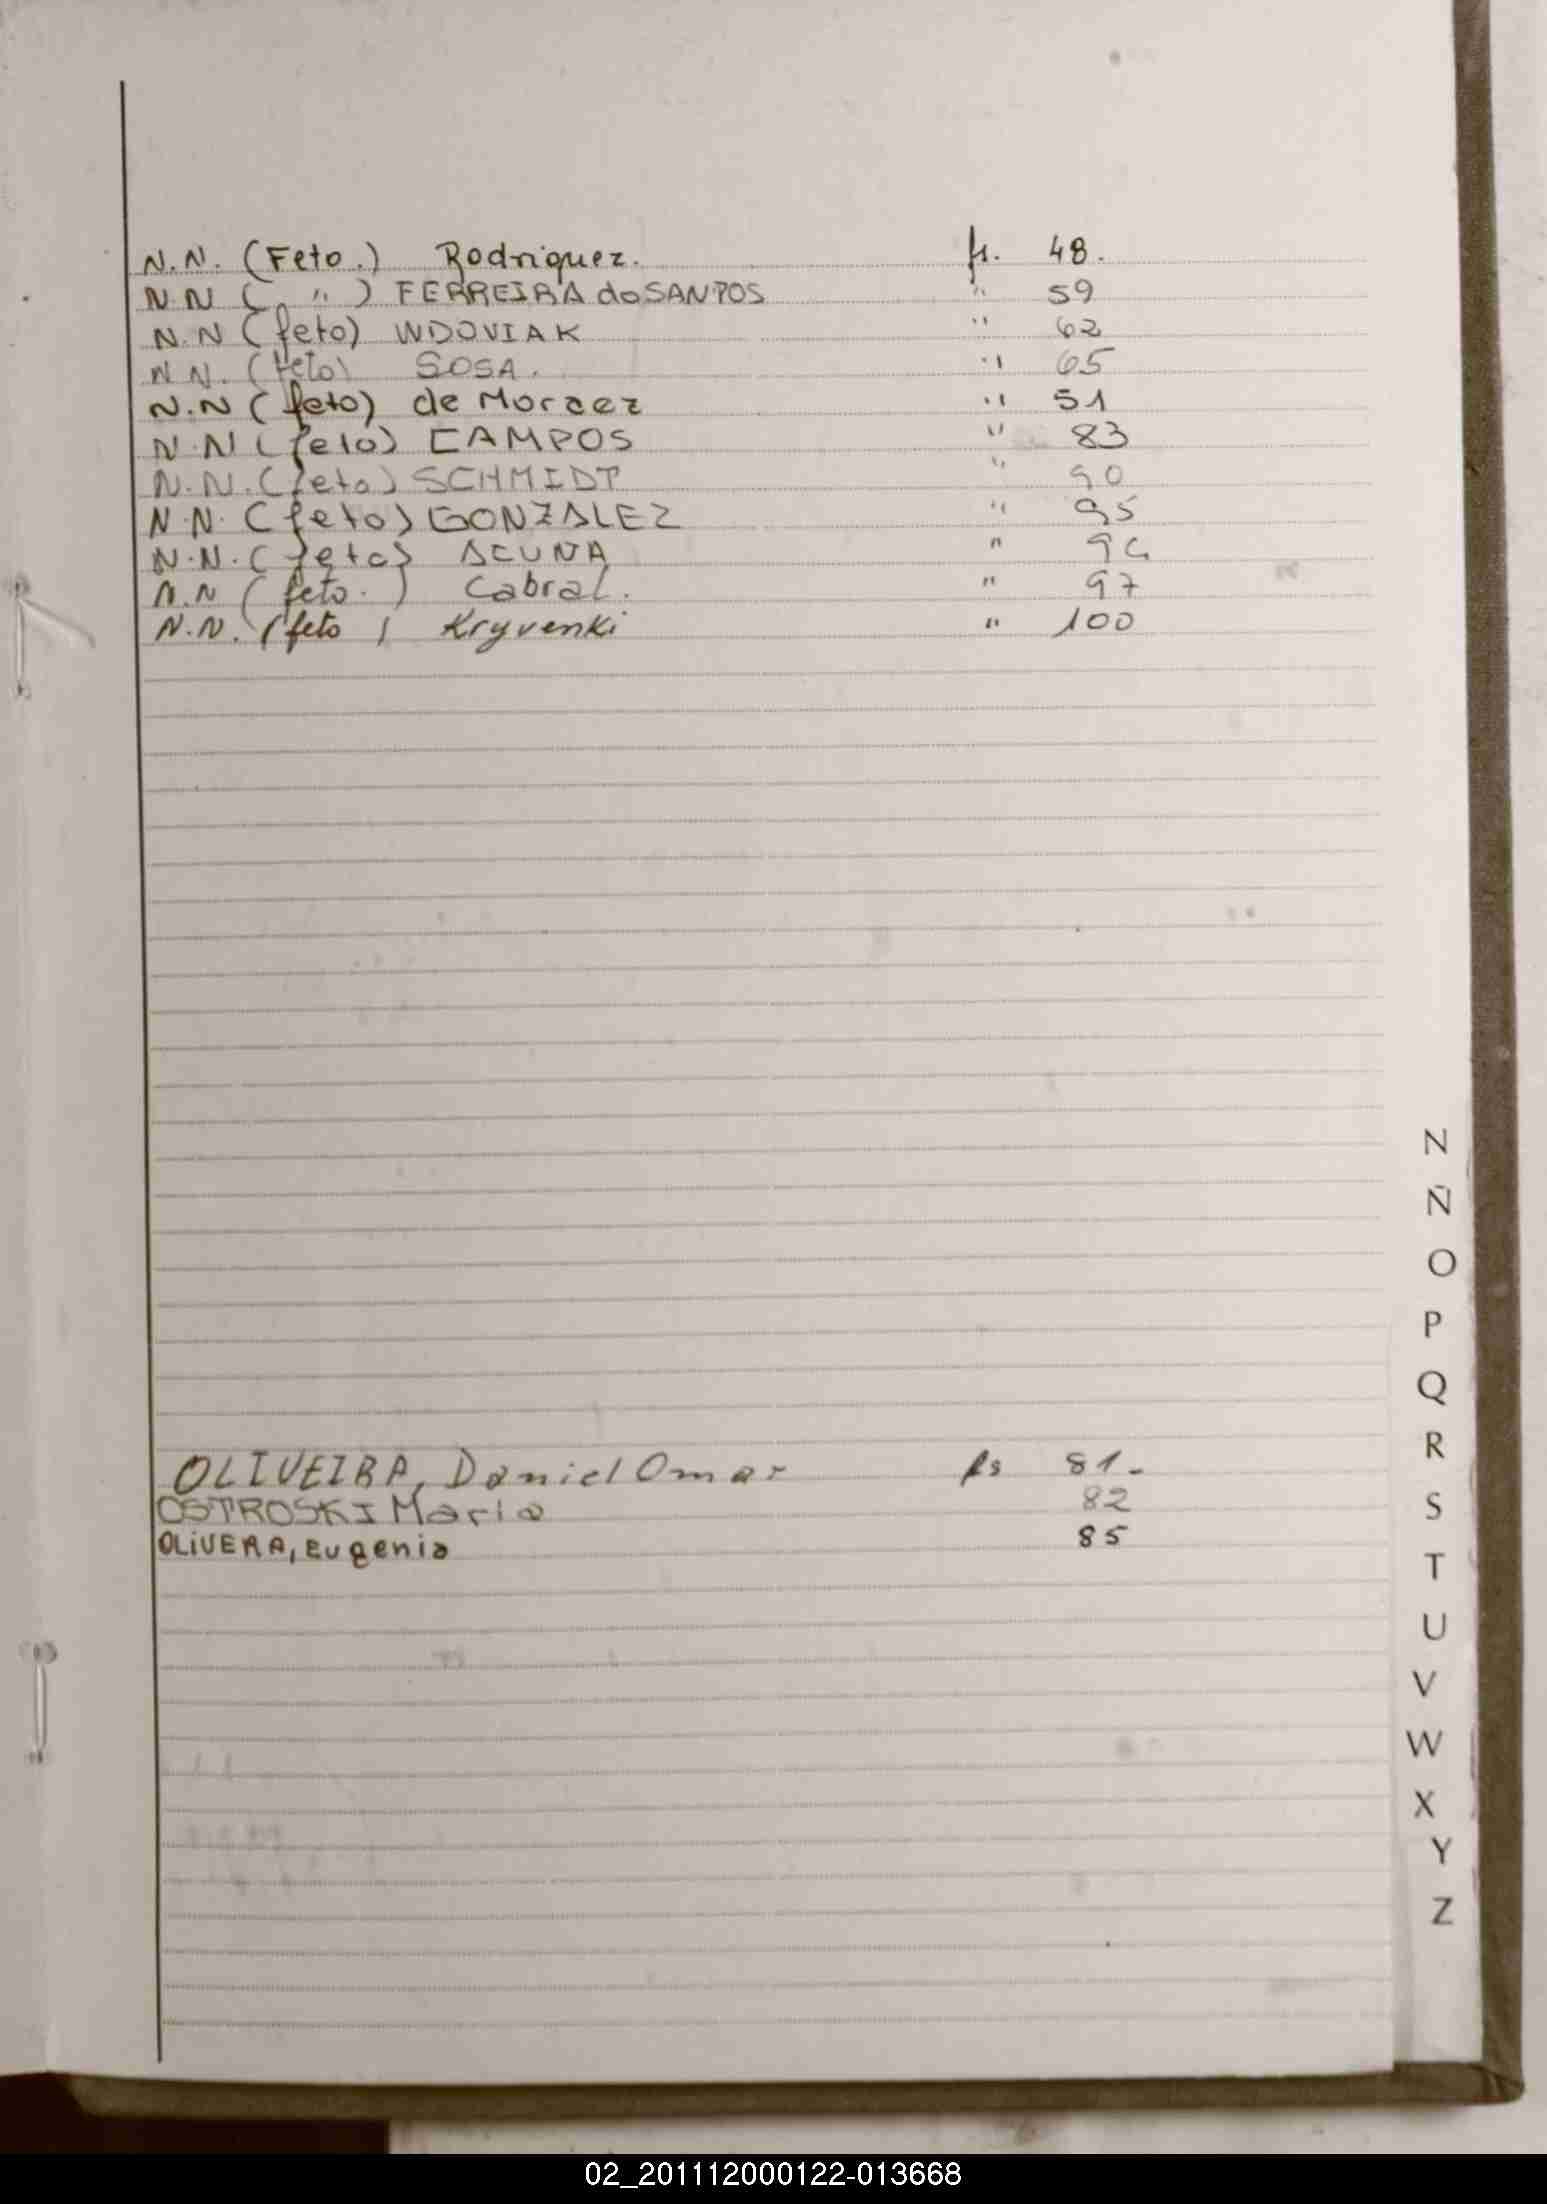 N.N. (Feto.) Rodriguez. fs. 48.
N N ( " ) FERREIRA do SANTOS " 59
N.N (feto) WDOVIAK " 62
N N. (feto) SOSA. " 65
N.N (feto) de Moraez " 51
N.N (feto) CAMPOS " 83
N.N. (feto) SCHMIDT " 90
N.N. (feto) GONZALEZ " 95
N.N. (feto) ACUNA " 96
N.N (feto.) Cabral. " 97
N.N. (feto) Kryvenki " 100
N
Ñ
O
P
Q
R
OLIVEIRA, Daniel Omar fs 81.-
OSTROSKI Maria 82
S
OLIVERA, Eugenia 85
T
U
V
W
X
Y
Z
02_201112000122-013668